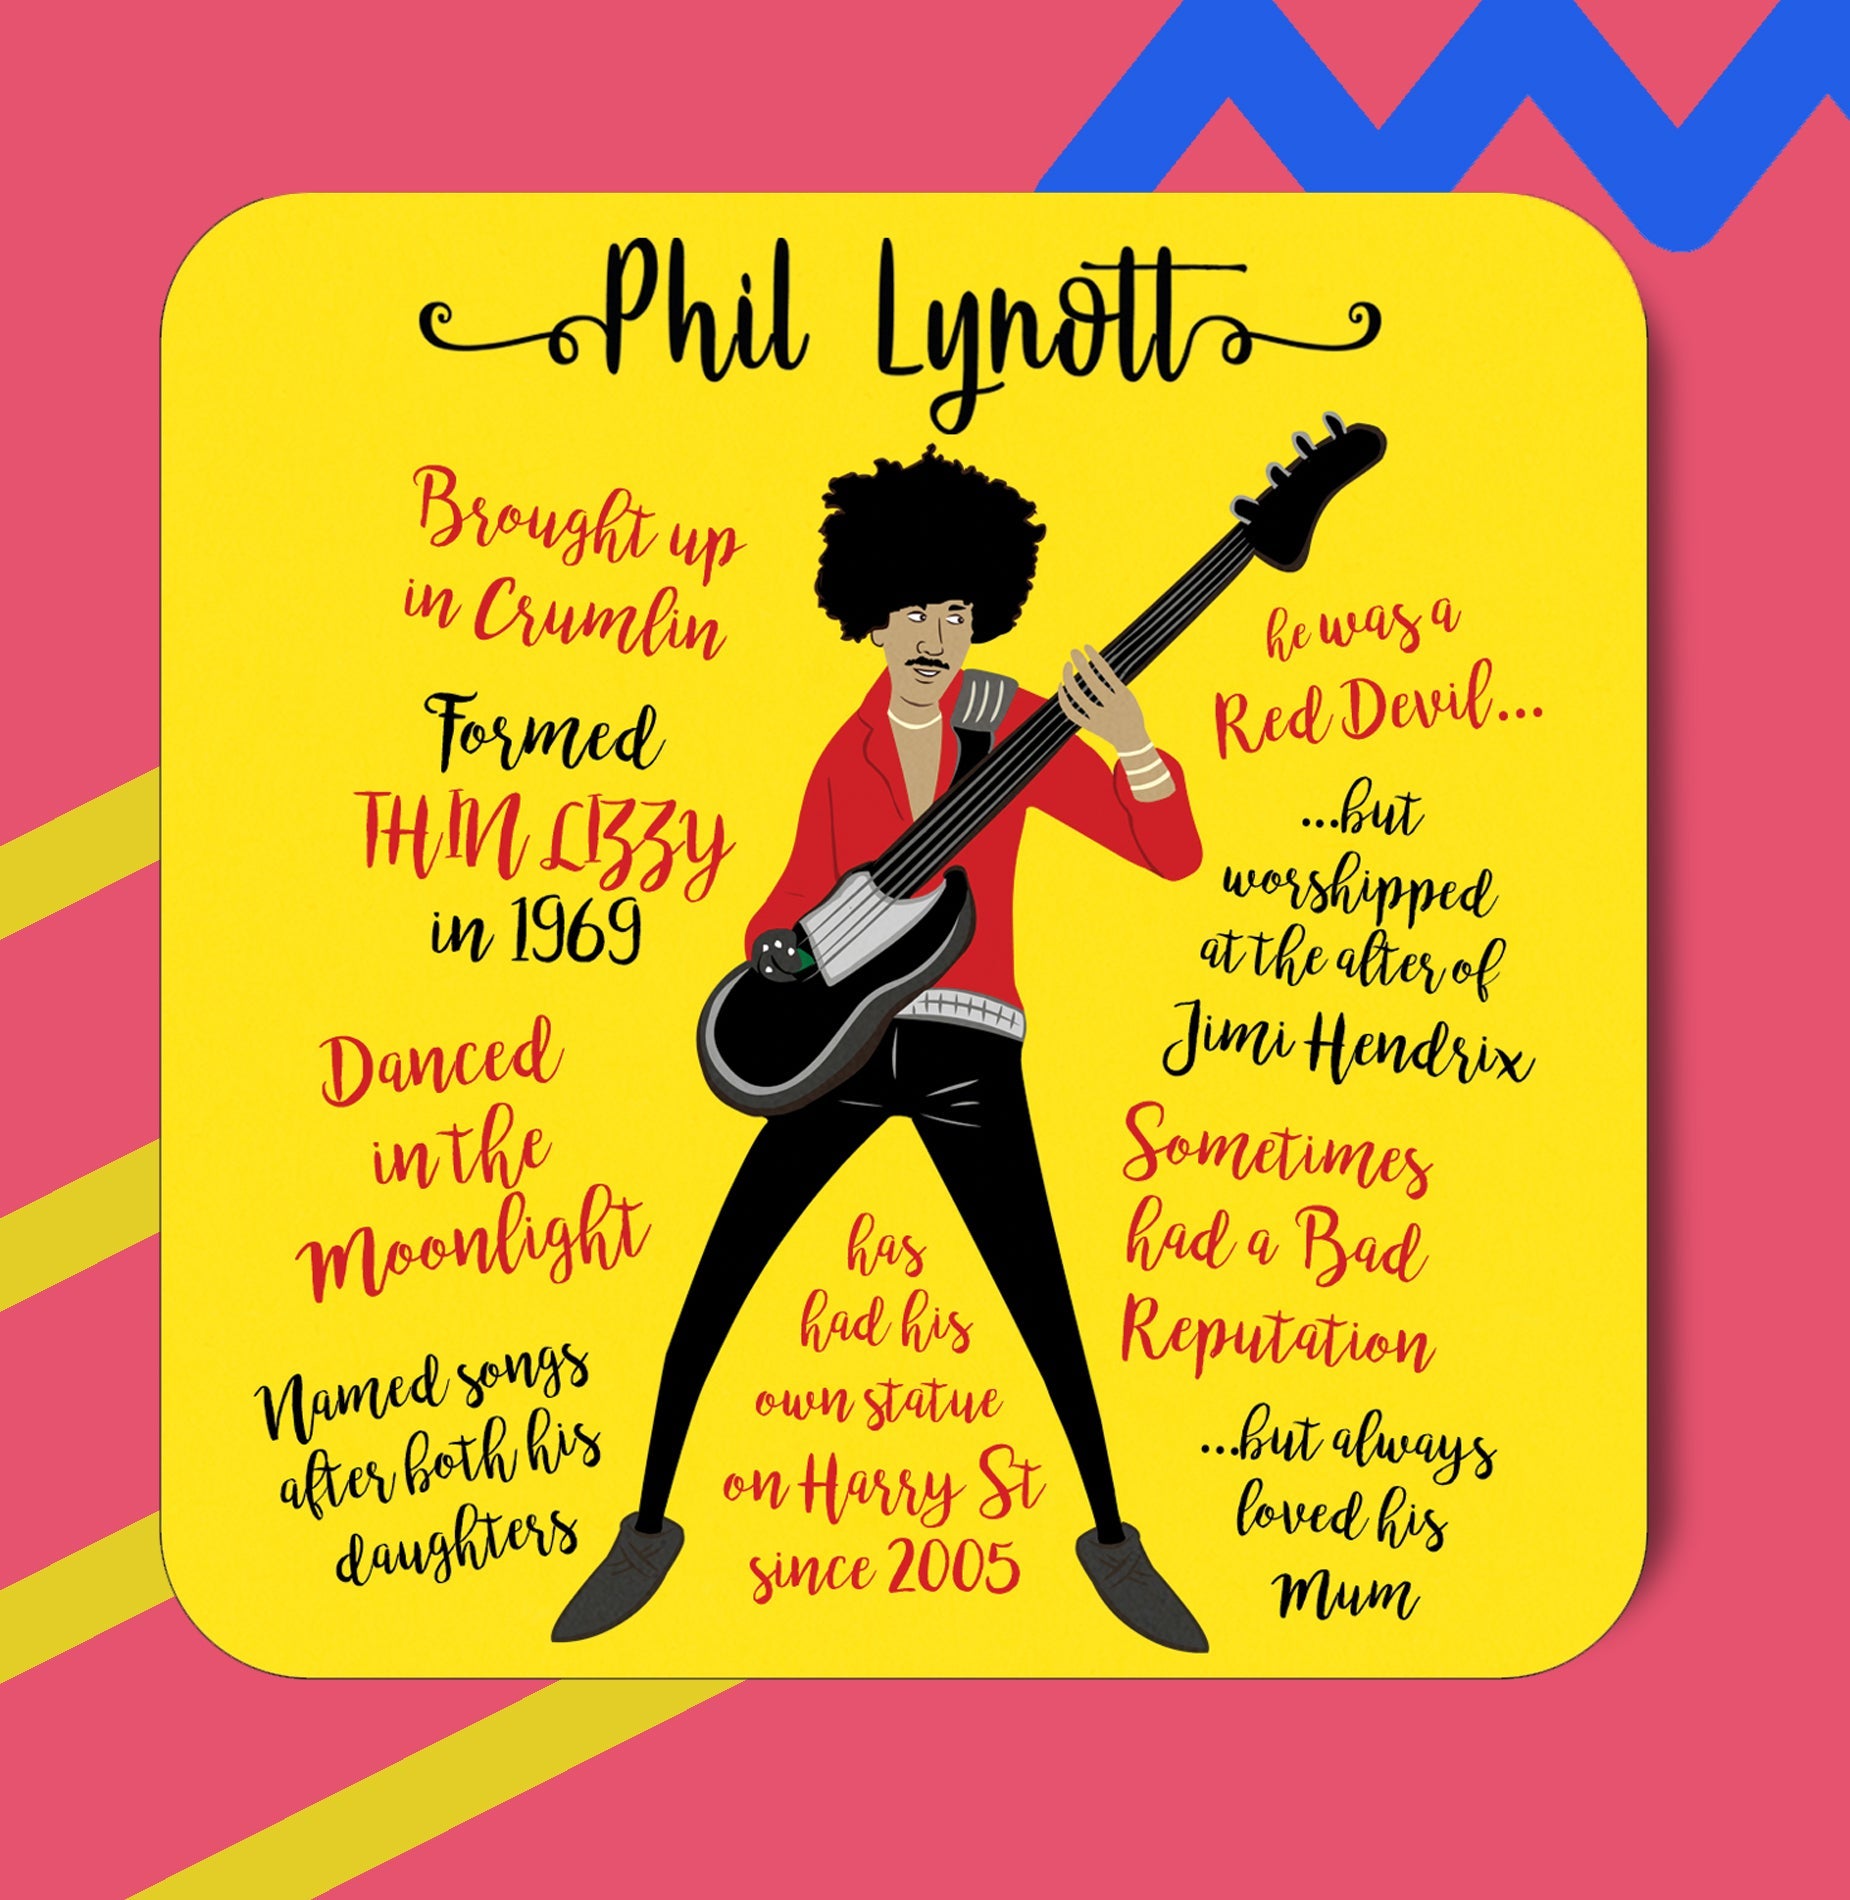 Phil Lynott
Brought up
in Crumlin
Formed
THIN LIZZY
in 1969
Danced
in the
Moonlight
Named songs
after both his
daughters
has
had his
own statue
on Harry St
since 2005
he was a
Red Devil...
...but
worshipped
at the alter of
Jimi Hendrix
Sometimes
had a Bad
Reputation
...but always
loved his
Mum